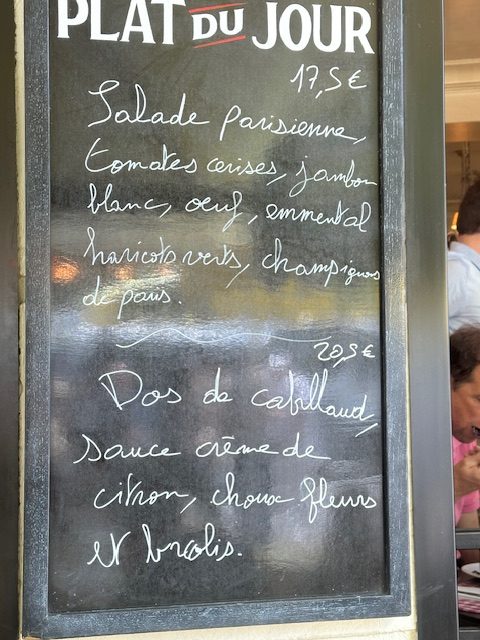 PLAT DU JOUR
17,5€
Salade parisienne,
tomates cerises, jambon
blanc, oeuf, emmental
haricots verts, champignons
de paris.
20,5€
Dos de cabillaud,
sauce crème de
citron, choux fleurs
et brocolis.